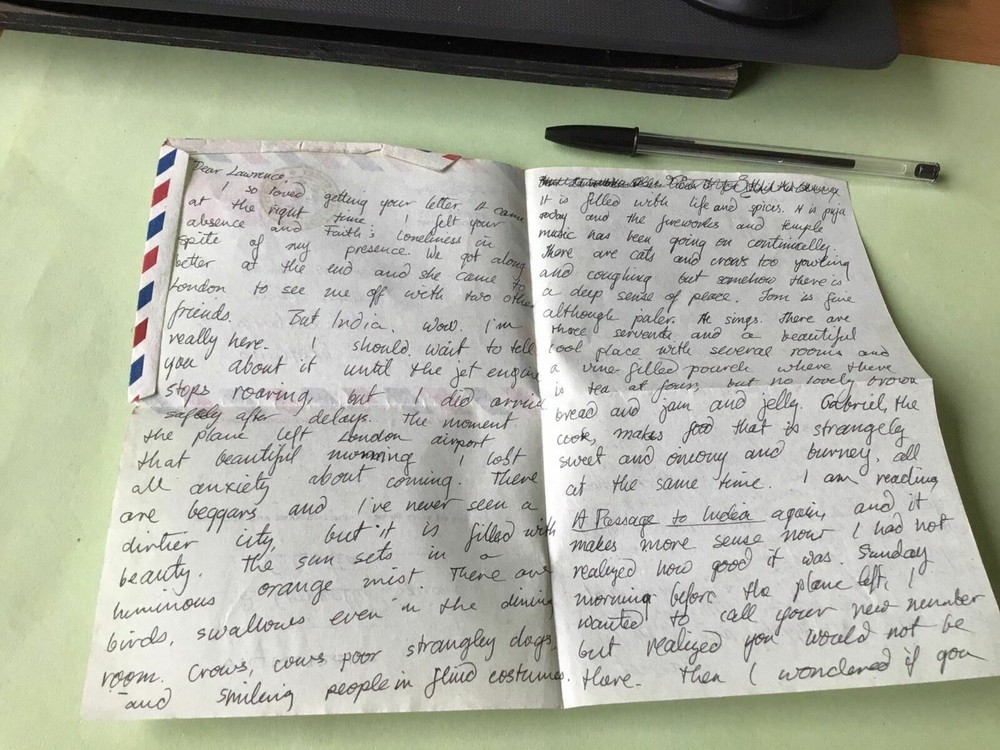 Dear Lawrence,
I so loved getting your letter. It came
at the right time. I felt your
absence and Faith's loneliness in
spite of my presence. We got along
better at the end and she came to
London to see me off with two other
friends. But India. Wow. I'm
really here. I should wait to tell
you about it until the jet engine
stops roaring, but I did arrive
safely after delays. The moment
the plane left London airport
that beautiful morning I lost
all anxiety about coming. There
are beggars and I've never seen a
dirtier city, but it is filled with
beauty. The sun sets in a
luminous orange mist. There are
birds, swallows even in the dining
room. Crows, cows, poor strangley dogs,
and smiling people in fluid costumes.
It is filled with life and spices. It is puja
today and the fireworks and temple
music has been going on continually.
There are cats and crows too yowling
and coughing but somehow there is
a deep sense of peace. Tom is fine
although paler. He sings. There are
three servents and a beautiful
cool place with several rooms and
a vine-filled pourch where there
is tea at four, but no lovely brown
bread and jam and jelly. Gabriel, the
cook, makes food that is strangely
sweet and oniony and burney, all
at the same time. I am reading
A Passage to India again, and it
makes more sense now I had not
realized how good it was. Sunday
morning before the plane left, I
wanted to call your new number
but realized you would not be
there. Then I wondered if you